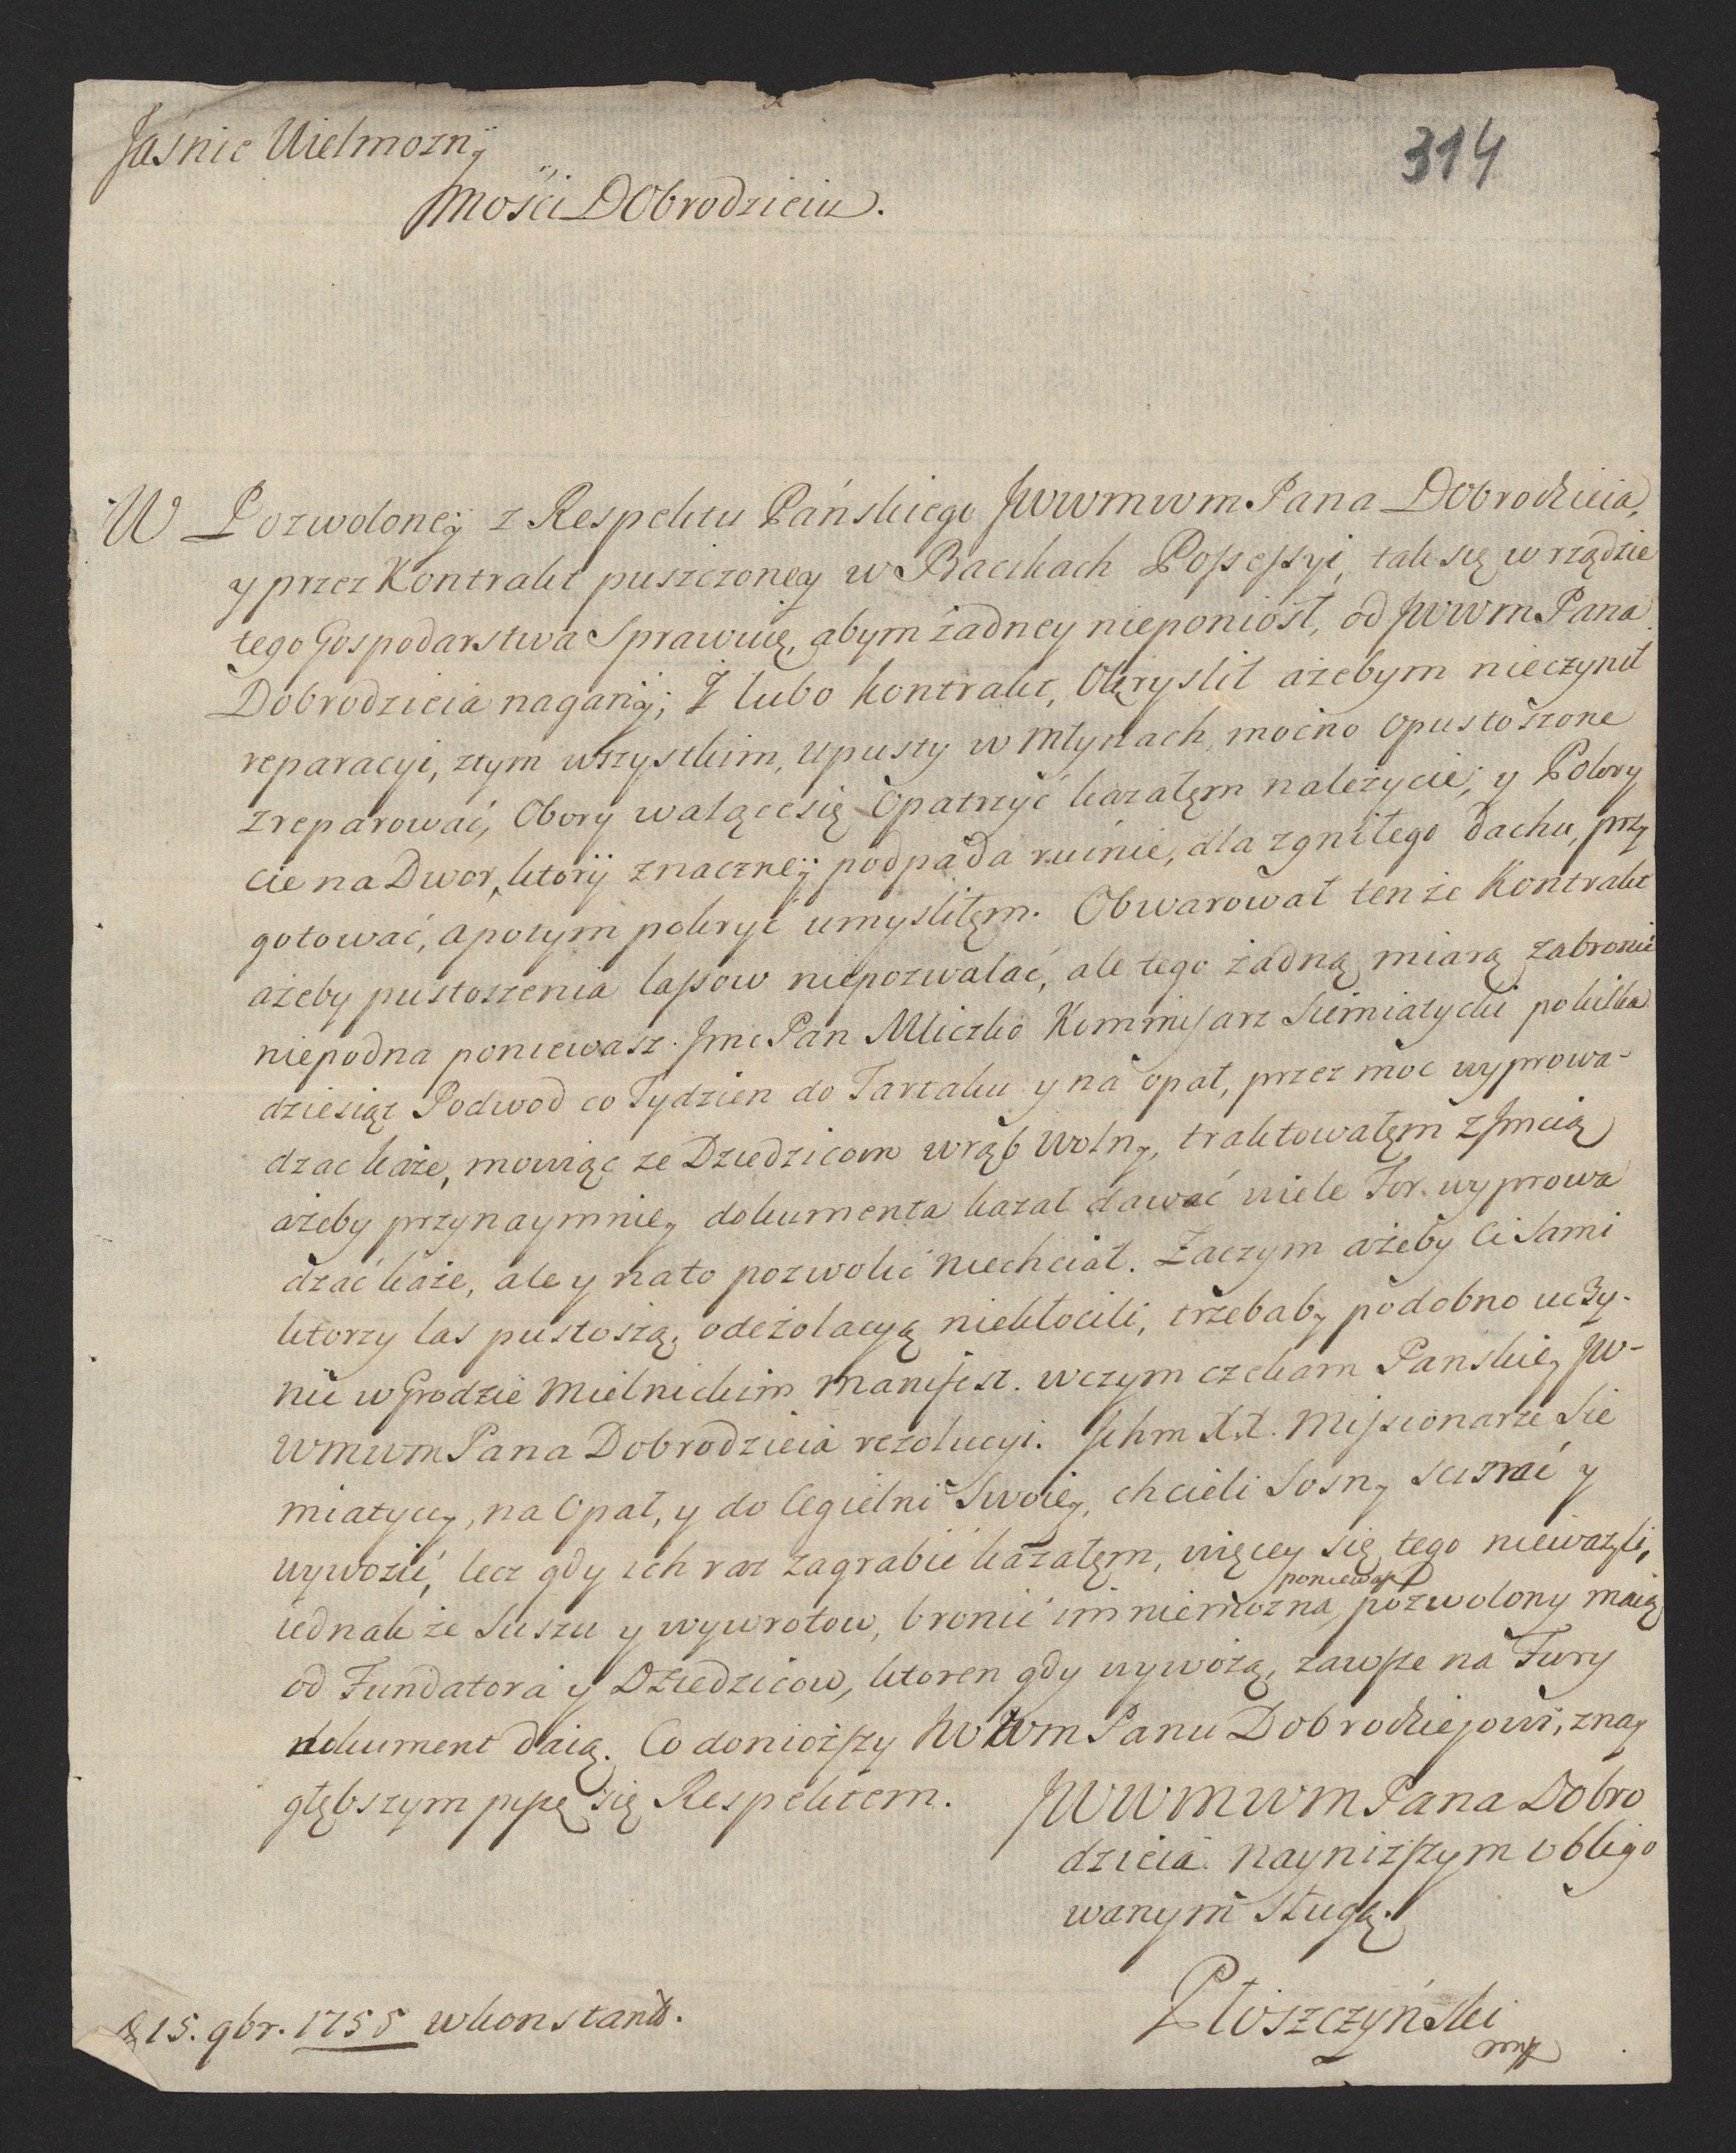 314
Jaśnie Wielmozny
Mości DObrodzieiu.
W Pozwoloney z Respektu Pańskiego JWWMWM Pana DObrodzieia,
y przez Kontrakt puszczoney w Backach Possessyi, tak się w rządzie
tego Gospodarstwa Sprawuię, abym żadney nieponiosł, od JWWM Pana
Dobrodzieia nagany; I lubo kontrakt, Okryslil ażebym nieczynił
reparacyi, ztym wszystkim, upusty w Młynach, mocno opustoszone
zreparować, Obory walącesię Opatrzyć kazałęm należycie, y Pokry
cie na Dwor, ktory znaczney podpada ruinie, dla zgniłego dachu, przy
gotować, apotym pokryć umyslilęm. Obwarował tenże Kontrakt
ażeby pustoszenia lassow niepozwalać, ale tego żadną miarą zabronić
niepodna poniewasz Jmc Pan Mliczko Kommisarz Siemiatycki pokilka
dziesiąt Podwod co Tydzien do Tartaku y na opał, przez moc wyprowa-
dzac każe, mowiąc ze Dziedzicom wrąb Wolny, traktowałęm z Jmcią
ażeby przynaymniey dokumenta kazał dawać wiele For wyprowa
dzać każe, ale y nato pozwolić niechciał. Zaczym ażeby Ci Sami
ktorzy las pustoszą, odeżolacyą niekłocili, trzebaby podobno uczy-
nić w Grodzie Mielnickim Manifest. wczym czekam Panskiey JW-
WMWM Pana Dobrodzieia rezolucyi. Jchm XX. Missionarze Sie
miatyccy, na Opał, y do Cegielni Swoiey, chcieli Sosny scinać y
wywozić, lecz gdy ich raz zagrabić kazałęm, więcey się tego nieważyli,
iednakże Suszu y wywrotow, bronić im niemozna, poniewasz pozwolony maią
od Fundatora y Dziedzicow, ktoren gdy wywożą, zawsze na Fury
dokument daią. Co doniozszy JWWM Panu Dobrodziejowi, znay
głębszym piszę się Respektem.
JWWMWM Pana Dobro
dzieia naynizszym obligo
wanym Sługą.
Płoszczyński
mp
15. 9br. 1755 wkonstant.